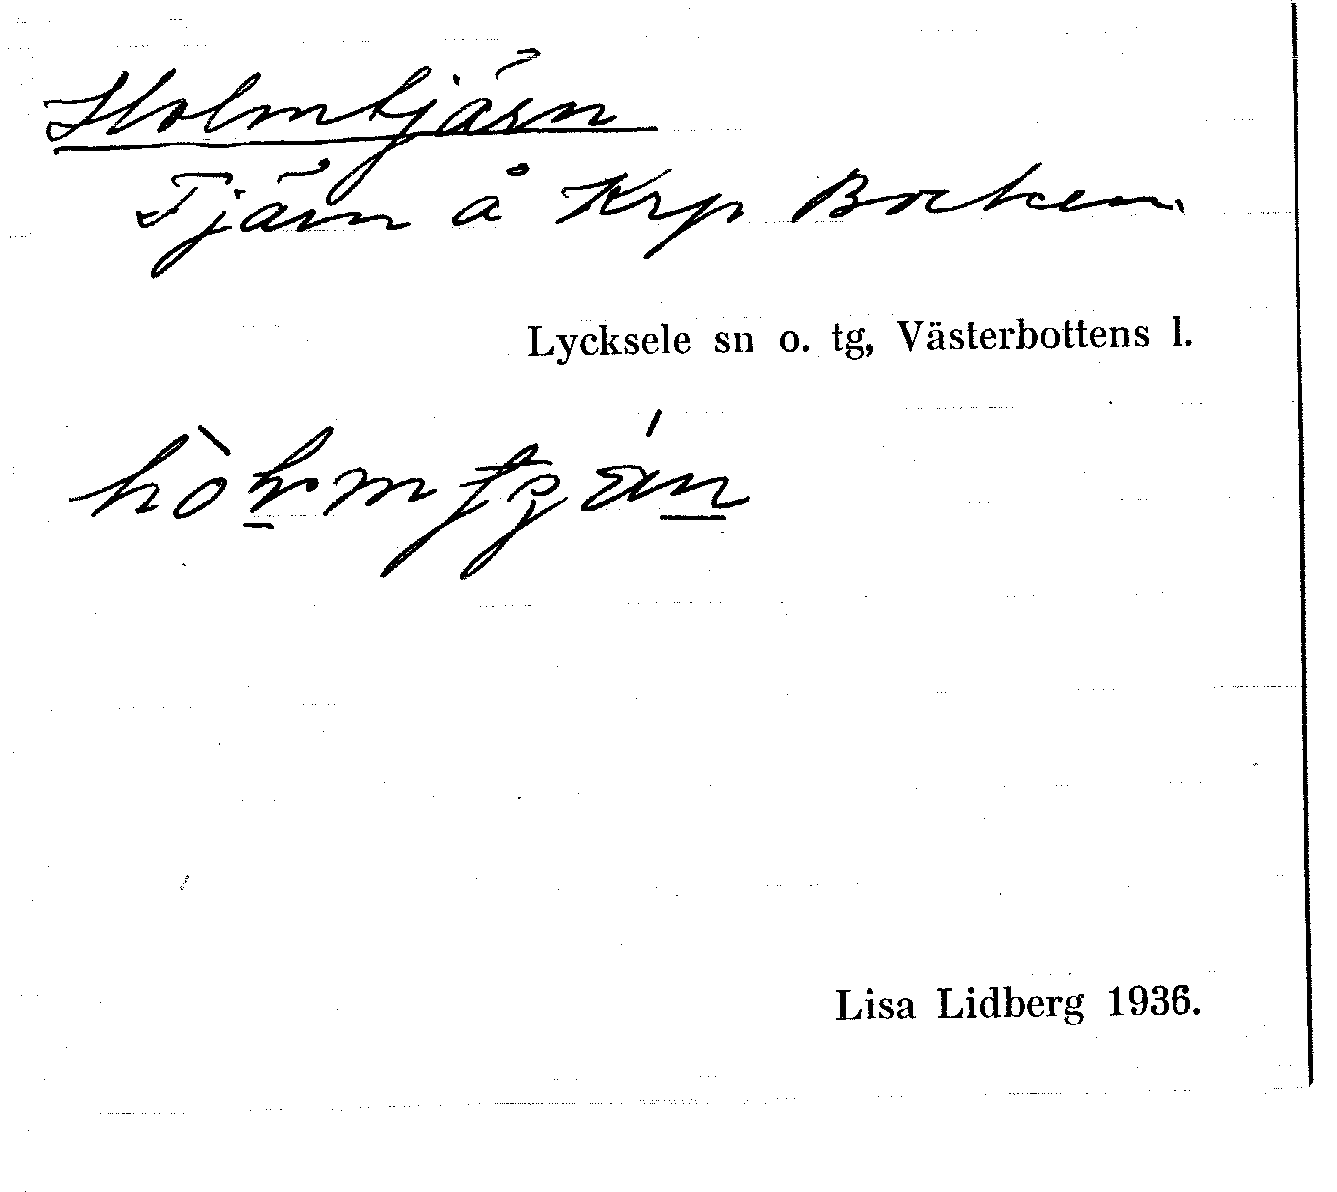 Holmtjärn
Tjärn å Krp Bocken.
Lycksele sn o. tg, Västerbottens l.
Lisa Lidberg 1936.